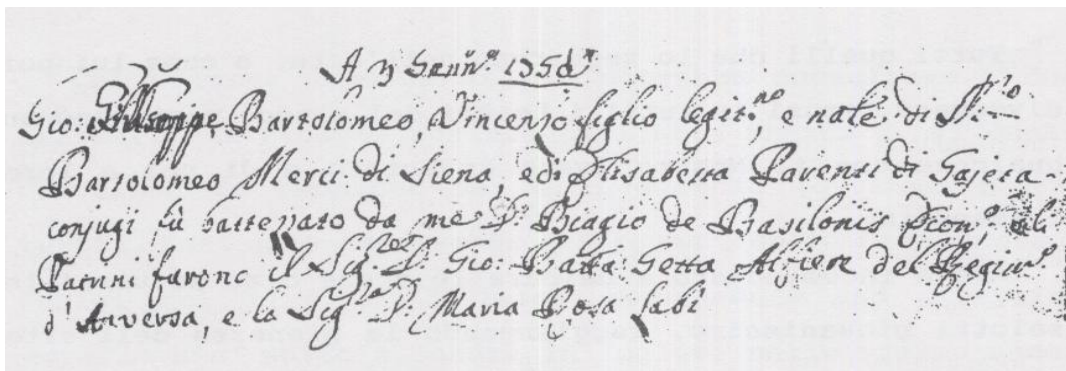 A 9 Genn.º 1750
Gio: Giuseppe, Bartolomeo, Vincenzo figlio legit.mo, e nãle di
Bartolomeo Merci di Siena, e di Elisabetta Parenti di Gajeta
conjugi fù battezzato da me D. Biagio de Basilonis Econ.º, e li
Patrini furono il Sig.r D. Gio: Batta Getta Alfiere del Regim.to
d'Anversa, e la Sig.ra D. Maria Rosa Labi